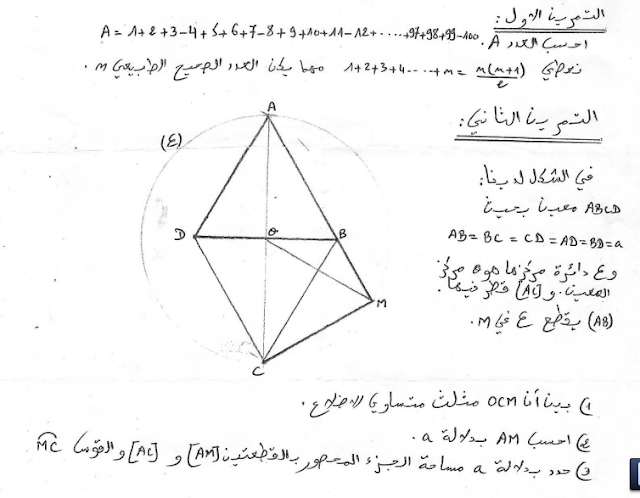 التمرين الأول:
A = 1+2+3-4+5+6+7-8+9+10+11-12+.....+97+98+99-100
احسب العدد A.
نعطي 1+2+3+4....+n = n(n+1)/2 مهما يكن العدد الصحيح الطبيعي n.
التمرين الثاني:
في الشكل لدينا:
ABCD معين بحيث
AB = BC = CD = AD = BD = a
و ع دائرة مركزها هو مركز
المعين و [AC] قطر فيها.
(AB) يقطع ع في M.
A
(ع)
D
O
B
M
C
1) بين أن OCM مثلث متساوي الأضلاع.
2) احسب AM بدلالة a.
3) حدد بدلالة a مساحة الجزء المحصور بالقطعتين [AM] و [AC] والقوس MC